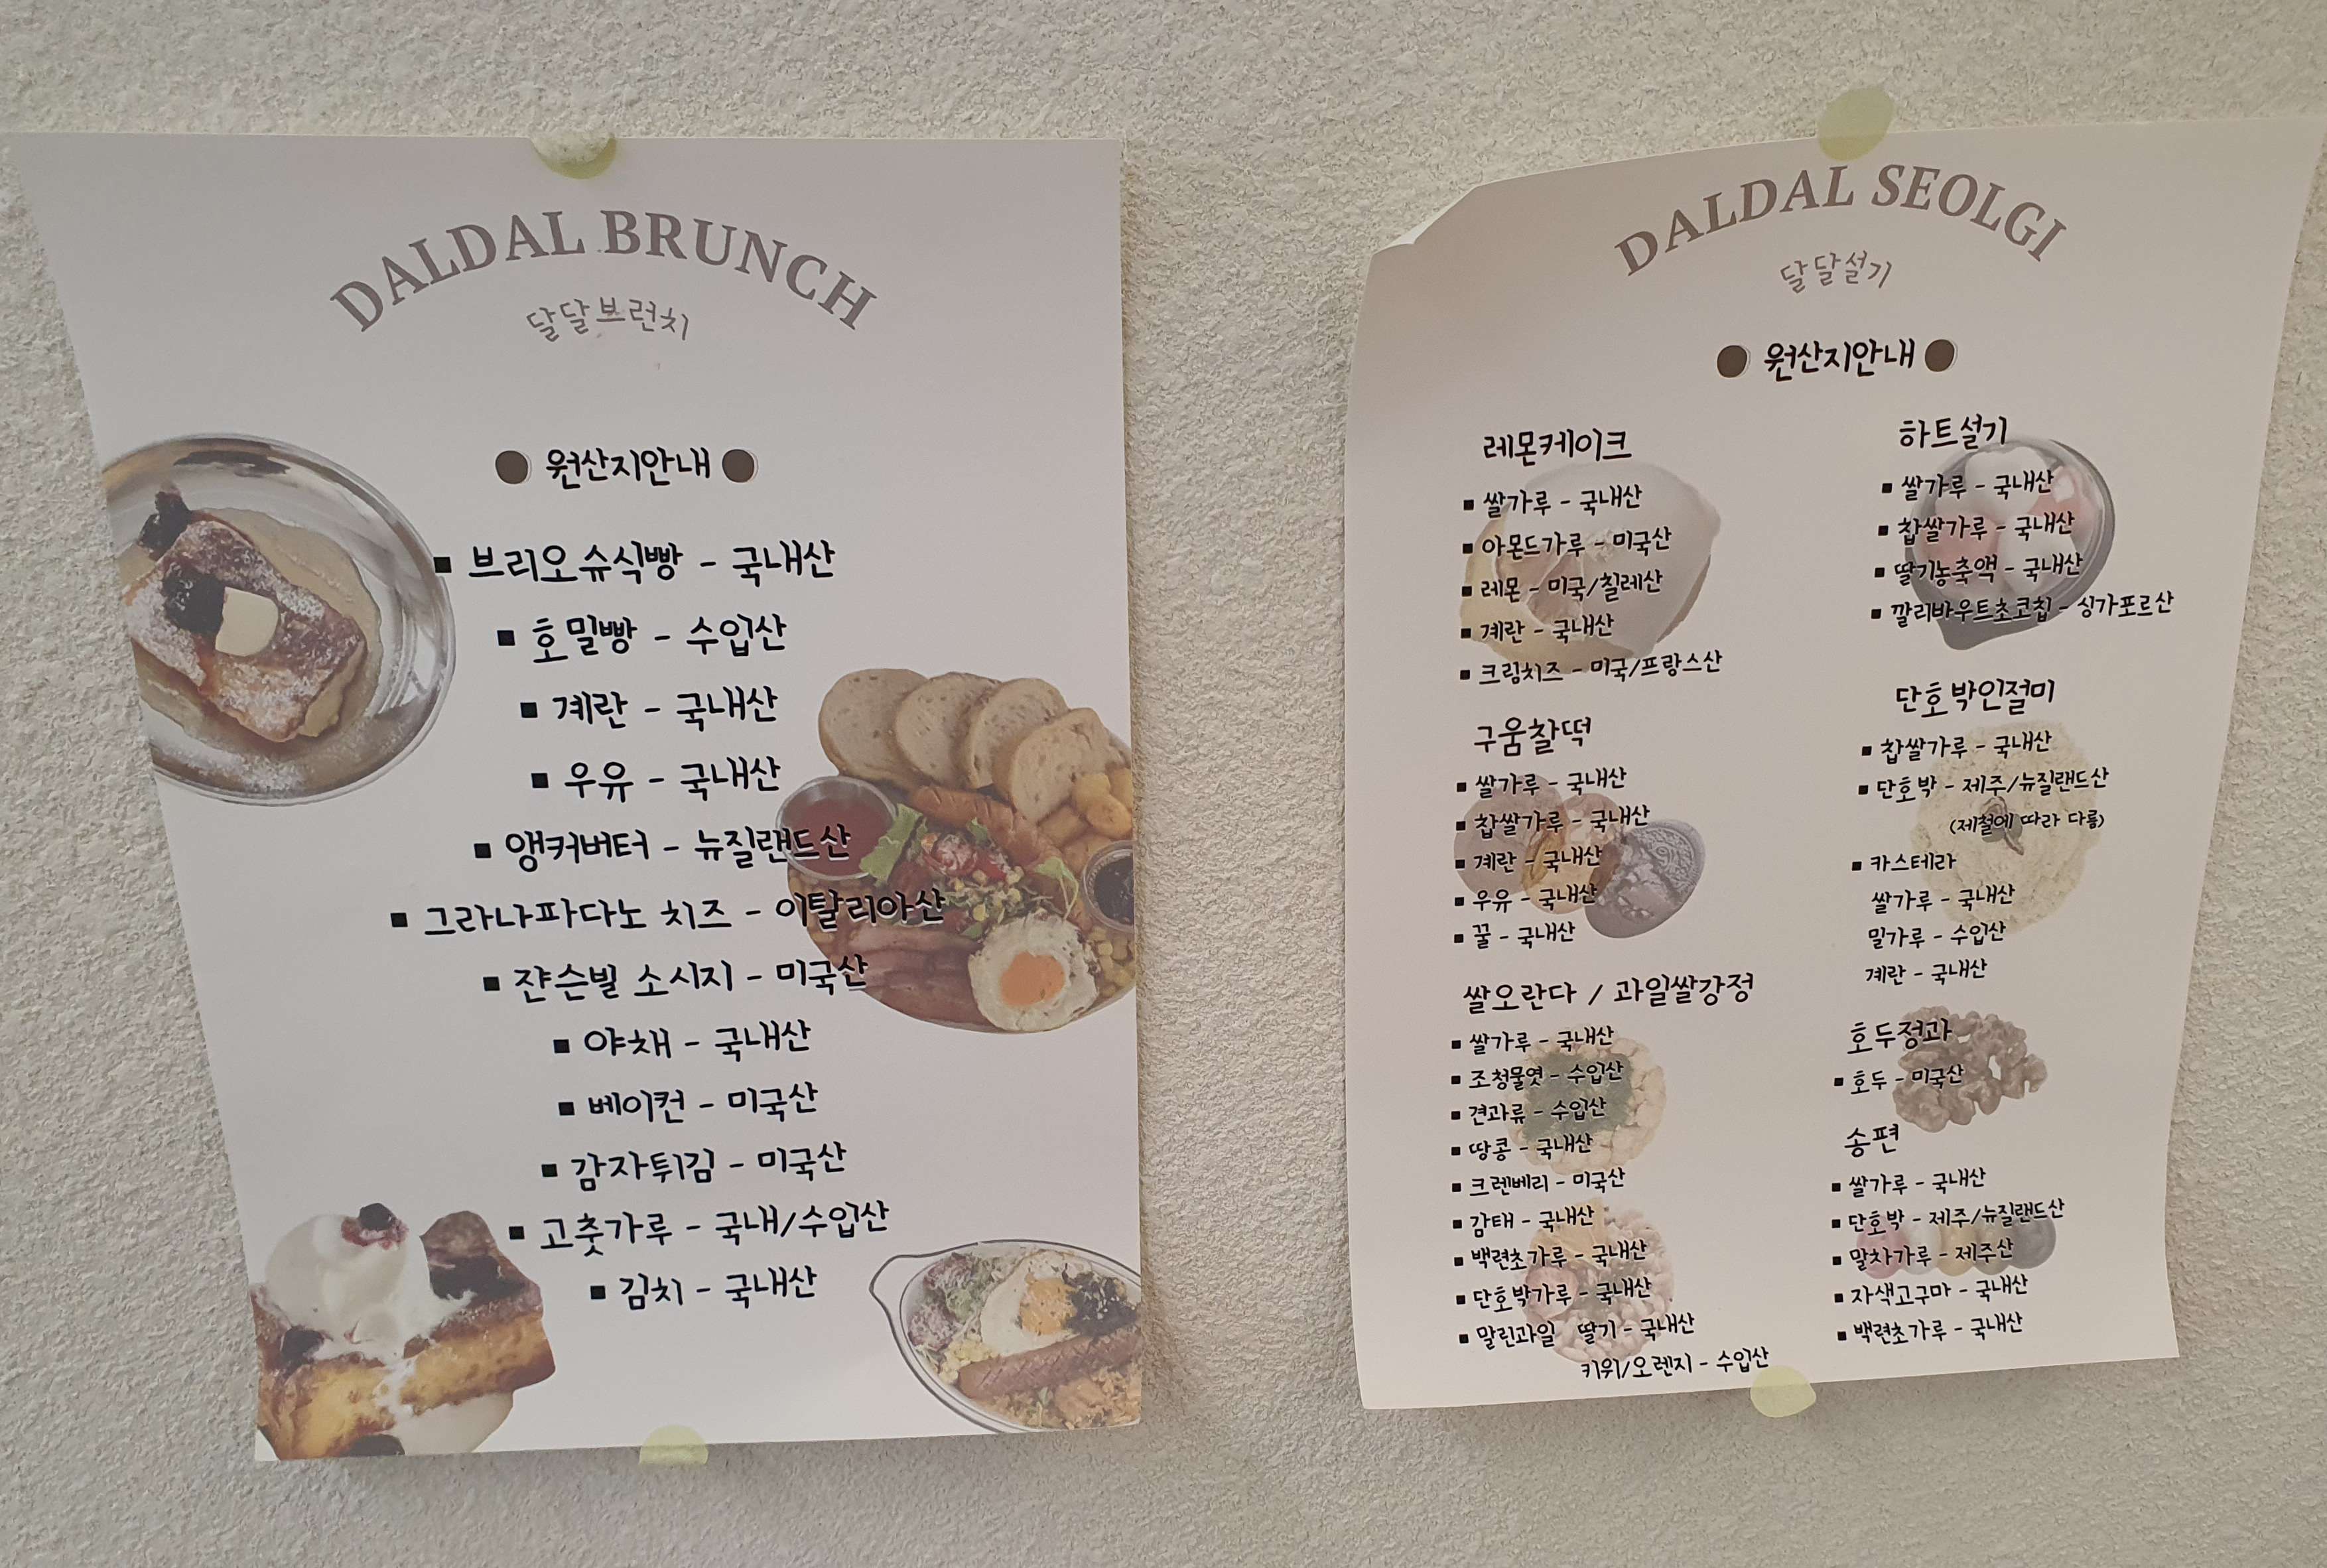 DALDAL BRUNCH
달달브런치
원산지안내
▪ 브리오슈식빵 - 국내산
▪ 호밀빵 - 수입산
▪ 계란 - 국내산
▪ 우유 - 국내산
▪ 앵커버터 - 뉴질랜드산
▪ 그라나파다노 치즈 - 이탈리아산
▪ 쟌슨빌 소시지 - 미국산
▪ 야채 - 국내산
▪ 베이컨 - 미국산
▪ 감자튀김 - 미국산
▪ 고춧가루 - 국내/수입산
▪ 김치 - 국내산
DALDAL SEOLGI
달달설기
원산지안내
레몬케이크
▪ 쌀가루 - 국내산
▪ 아몬드가루 - 미국산
▪ 레몬 - 미국/칠레산
▪ 계란 - 국내산
▪ 크림치즈 - 미국/프랑스산
구움찰떡
▪ 쌀가루 - 국내산
▪ 찹쌀가루 - 국내산
▪ 계란 - 국내산
▪ 우유 - 국내산
▪ 꿀 - 국내산
쌀오란다 / 과일쌀강정
▪ 쌀가루 - 국내산
▪ 조청물엿 - 수입산
▪ 견과류 - 수입산
▪ 땅콩 - 국내산
▪ 크렌베리 - 미국산
▪ 감태 - 국내산
▪ 백련초가루 - 국내산
▪ 단호박가루 - 국내산
▪ 말린과일 딸기 - 국내산
키위/오렌지 - 수입산
하트설기
▪ 쌀가루 - 국내산
▪ 찹쌀가루 - 국내산
▪ 딸기농축액 - 국내산
▪ 깔리바우트초코칩 - 싱가포르산
단호박인절미
▪ 찹쌀가루 - 국내산
▪ 단호박 - 제주/뉴질랜드산
(제철에 따라 다름)
▪ 카스테라
쌀가루 - 국내산
밀가루 - 수입산
계란 - 국내산
호두정과
▪ 호두 - 미국산
송편
▪ 쌀가루 - 국내산
▪ 단호박 - 제주/뉴질랜드산
▪ 말차가루 - 제주산
▪ 자색고구마 - 국내산
▪ 백련초가루 - 국내산